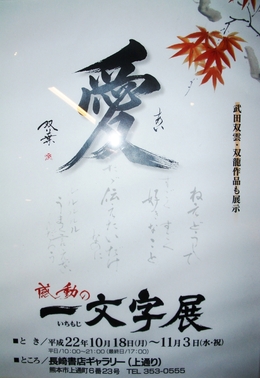 愛
あい
双葉
武田双雲・双龍作品も展示
感動の
一文字展
いちもじ
■と き/平成22年10月18日(月)〜11月3日(水・祝)
平日/10:00〜21:00(最終日/17:00)
■ところ/長崎書店ギャラリー(上通り)
熊本市上通町6番23号 TEL 353-0555